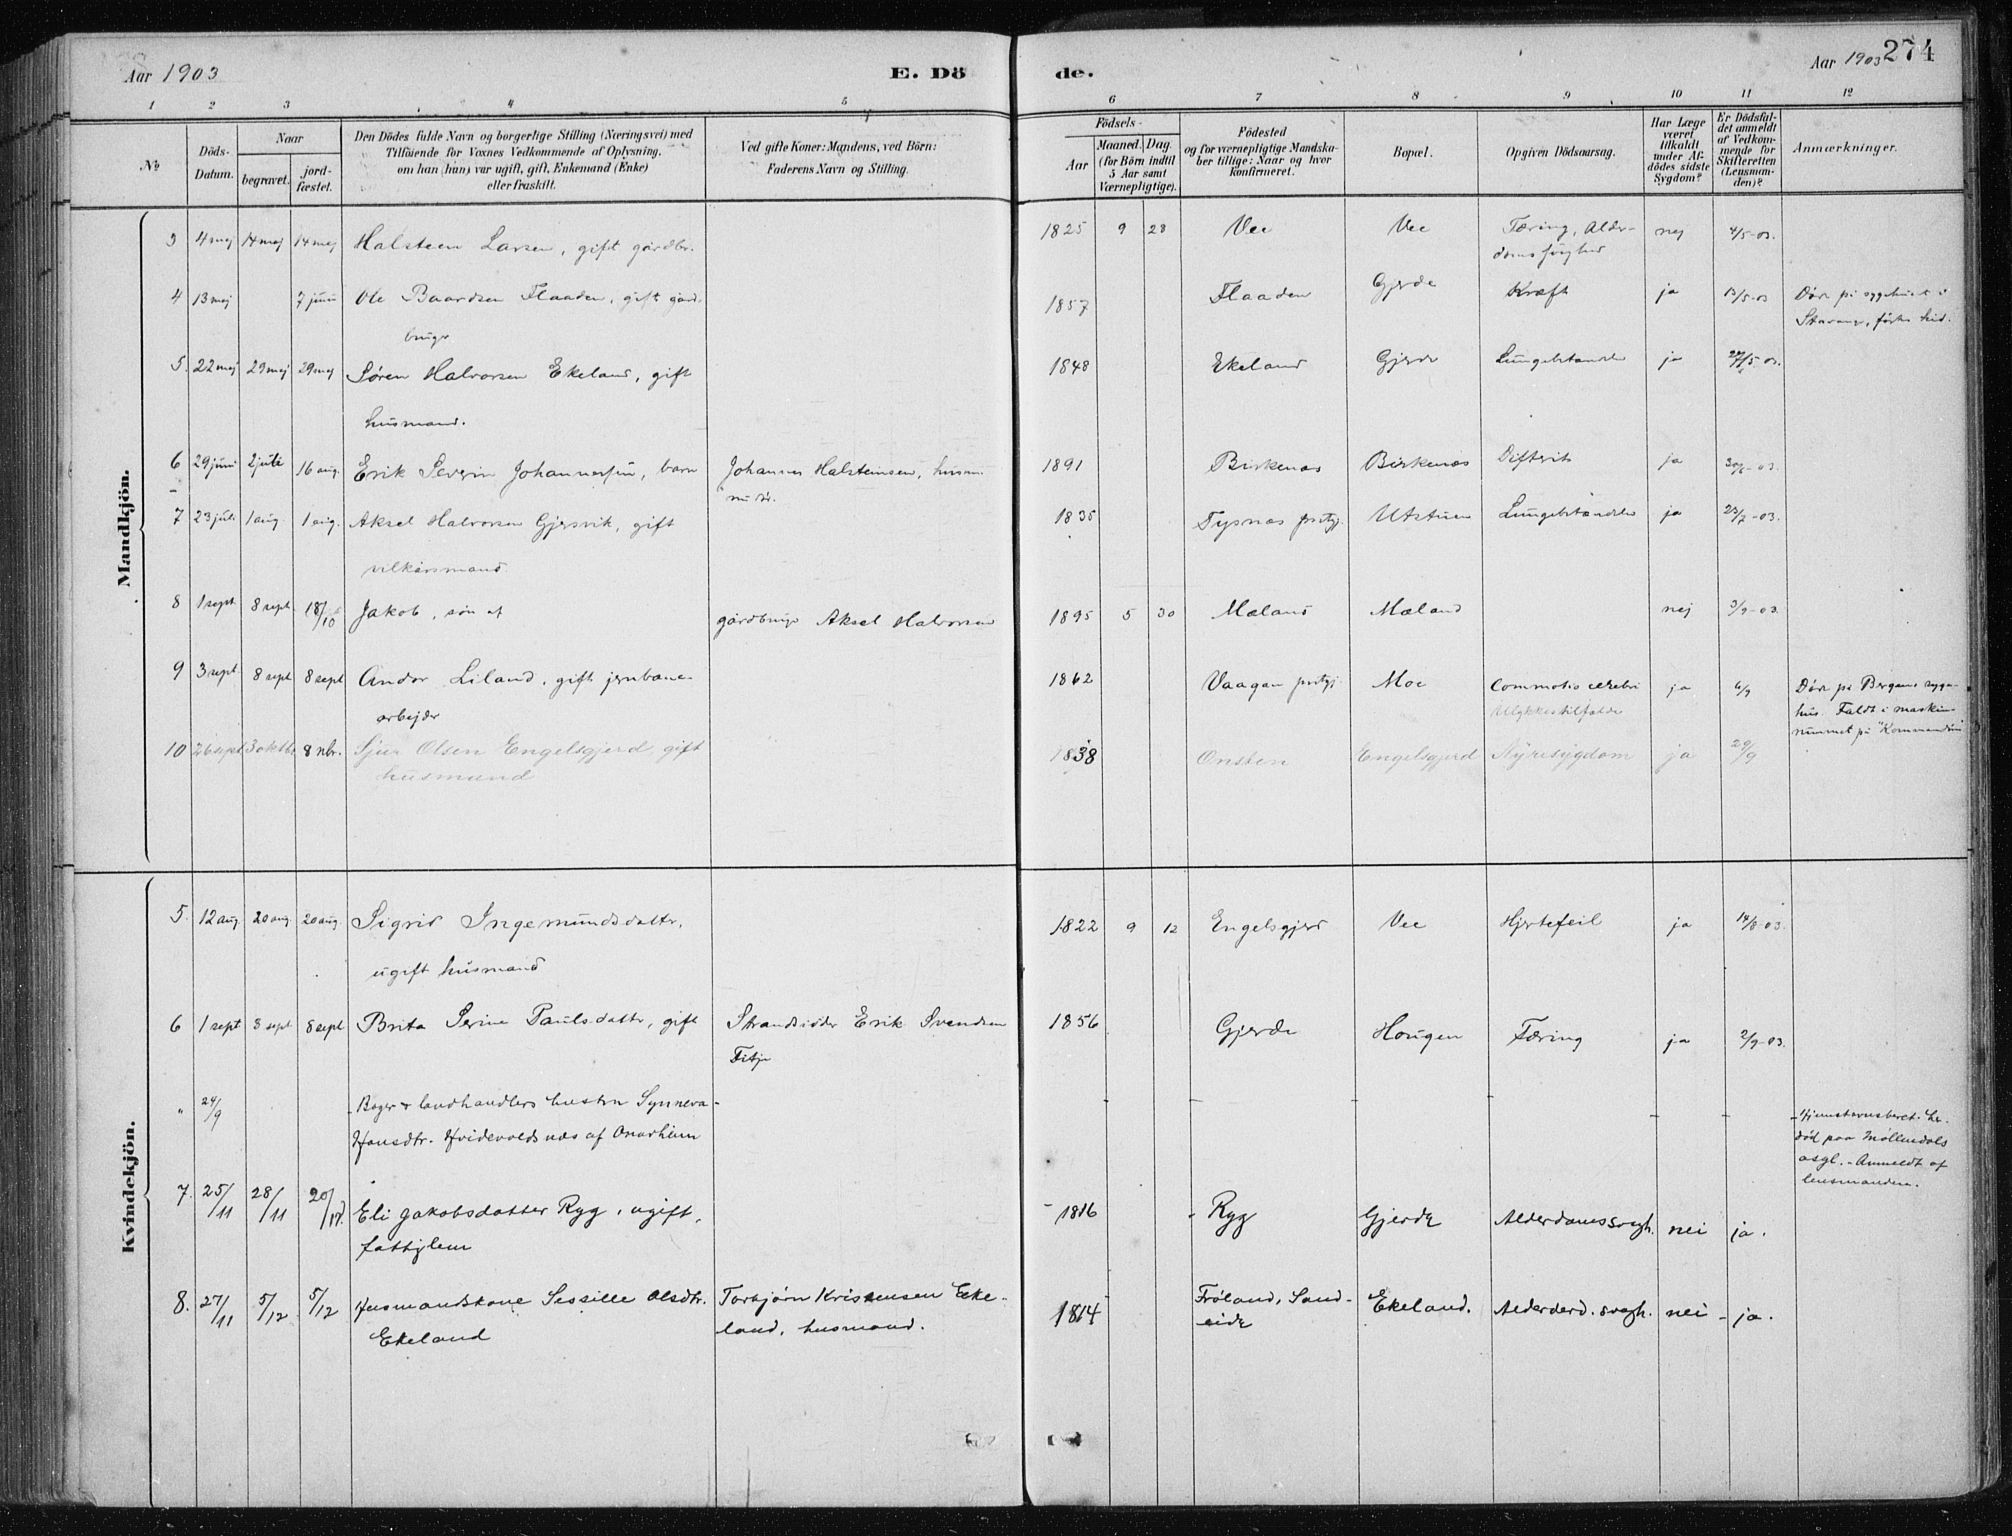 Aar 1903 E. Dö de. Aar 1903 274
1 2 3 4 5 6 7 8 9 10 11 12
No
Döds-Datum.
Naar
begravet.
jordfæstet.
Den Dödes fulde Navn og borgerlige Stilling (Næringsvei) med
Tilföiende for Voxnes Vedkommende af Oplysning,
om han (hun) var ugift, gift, Enkemand (Enke)
eller fraskilt.
Ved gifte Koner: Mandens, ved Börn:
Faderens Navn og Stilling.
Födsels-
Aar
Maaned. Dag.
(for Börn indtil
5 Aar samt
Værnepligtige).
Födested
og for værnepligtige Mandska-
ber tillige: Naar og hvor
konfirmeret.
Bopæl.
Opgiven Dödsaarsag.
Har Læge
været
tilkaldt
under Af-
dödes sidste
Sygdom?
Er Dödsfal-
det anmeldt
af Vedkom-
mende for
Skifteretten
(Lensman-
den)?
Anmærkninger.
Mandkjön.
3 4 mej 14 mej 14 mej Halsteen Larsen, gift gårdbr. 1825 9 28 Vee Vee Tæring, Alder-
domssvaghed nej 4/5-03.
4 13 mej 7 juni Ole Baardsen Flaaden, gift gård-
bruger 1857 Flaaden Gjerde Kræft ja 13/5-03 Døde på sygehuset i
Stavanger, førtes hid.
5. 22 mej 29 mej 29 mej Søren Halvorsen Ekeland, gift
husmand. 1848 Ekeland Gjerde Lungebetændelse ja 22/5-03.
6 29 juni 2 juli 16 aug. Erik Severin Johannessen, barn Johannes Halsteinsen, husm 1891 Birkenæs Birkenæs Difterit ja 30/6-03.
7 23 juli 1 aug. 1 aug. Aksel Halvorsen Gjersvik, gift
vilkårsmand 1835 Tysnæs prstgj. Utstuen Lungebetændelse ja 23/7-03.
8 1 sept 8 sept 18/10 Jakob, søn af gårdbruger Aksel Halvorsen 1895 5 30 Mæland Mæland nej 3/9-03.
9 3 sept. 8 sept 8 sept Andor Liland, gift jernbane-
arbejder 1862 Vaagan prstgj. Moe Commotio cerebri
Ulykkestilfælde ja 6/9 Døde på Bergens syge-
hus. Faldt i maskin-
rummet på "Kommandøren"
10 26 sept 3 oktbr 8 nbr. Sjur Olsen Engelsgjerd, gift
husmand 1838 Onsten Engelsgjerd Nyresygdom ja 29/9
Kvindekjön.
5. 12 aug. 20 aug. 20 aug. Sigrid Ingemundsdatter,
ugift husmand 1822 9 12 Engelsgjerd Vee Hjertefeil ja 14/8-03.
6 1 sept 8 sept 8 sept Brita Serine Paulsdatter, gift Strandsidder Erik Svendsen
Fitje 1856 Gjerde Hougen Tæring ja 2/9-03.
" 24/9 - Bager & landhandlers hustru Synneva -
Hansdtr. Hvidevoldsnæs af Onarheim - - - - - - Hjemstavnsberet. her
død paa Møllendals
asyl. - Anmeldt af
lensmanden.
7. 25/11 28/11 20/12. Eli Jakobsdatter Ryg, ugift,
fattiglem 1816 Ryg Gjerde Alderdomssvagh. nei ja.
8. 27/11 5/12 5/12 Husmandskone Sessille Olsdtr.
Ekeland Torbjørn Kristensen Eke-
land, husmand. 1814 Frøland, Sand-
eide Ekeland. Alderderd. svagh. nei - ja.